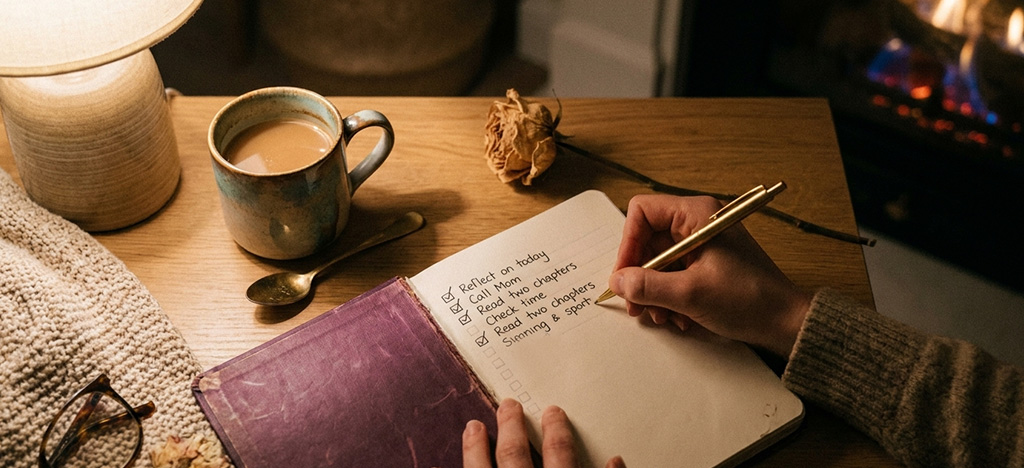 Reflect on today
Call Mom
Read two chapters
Check time
Read two chapters
Simning & sport